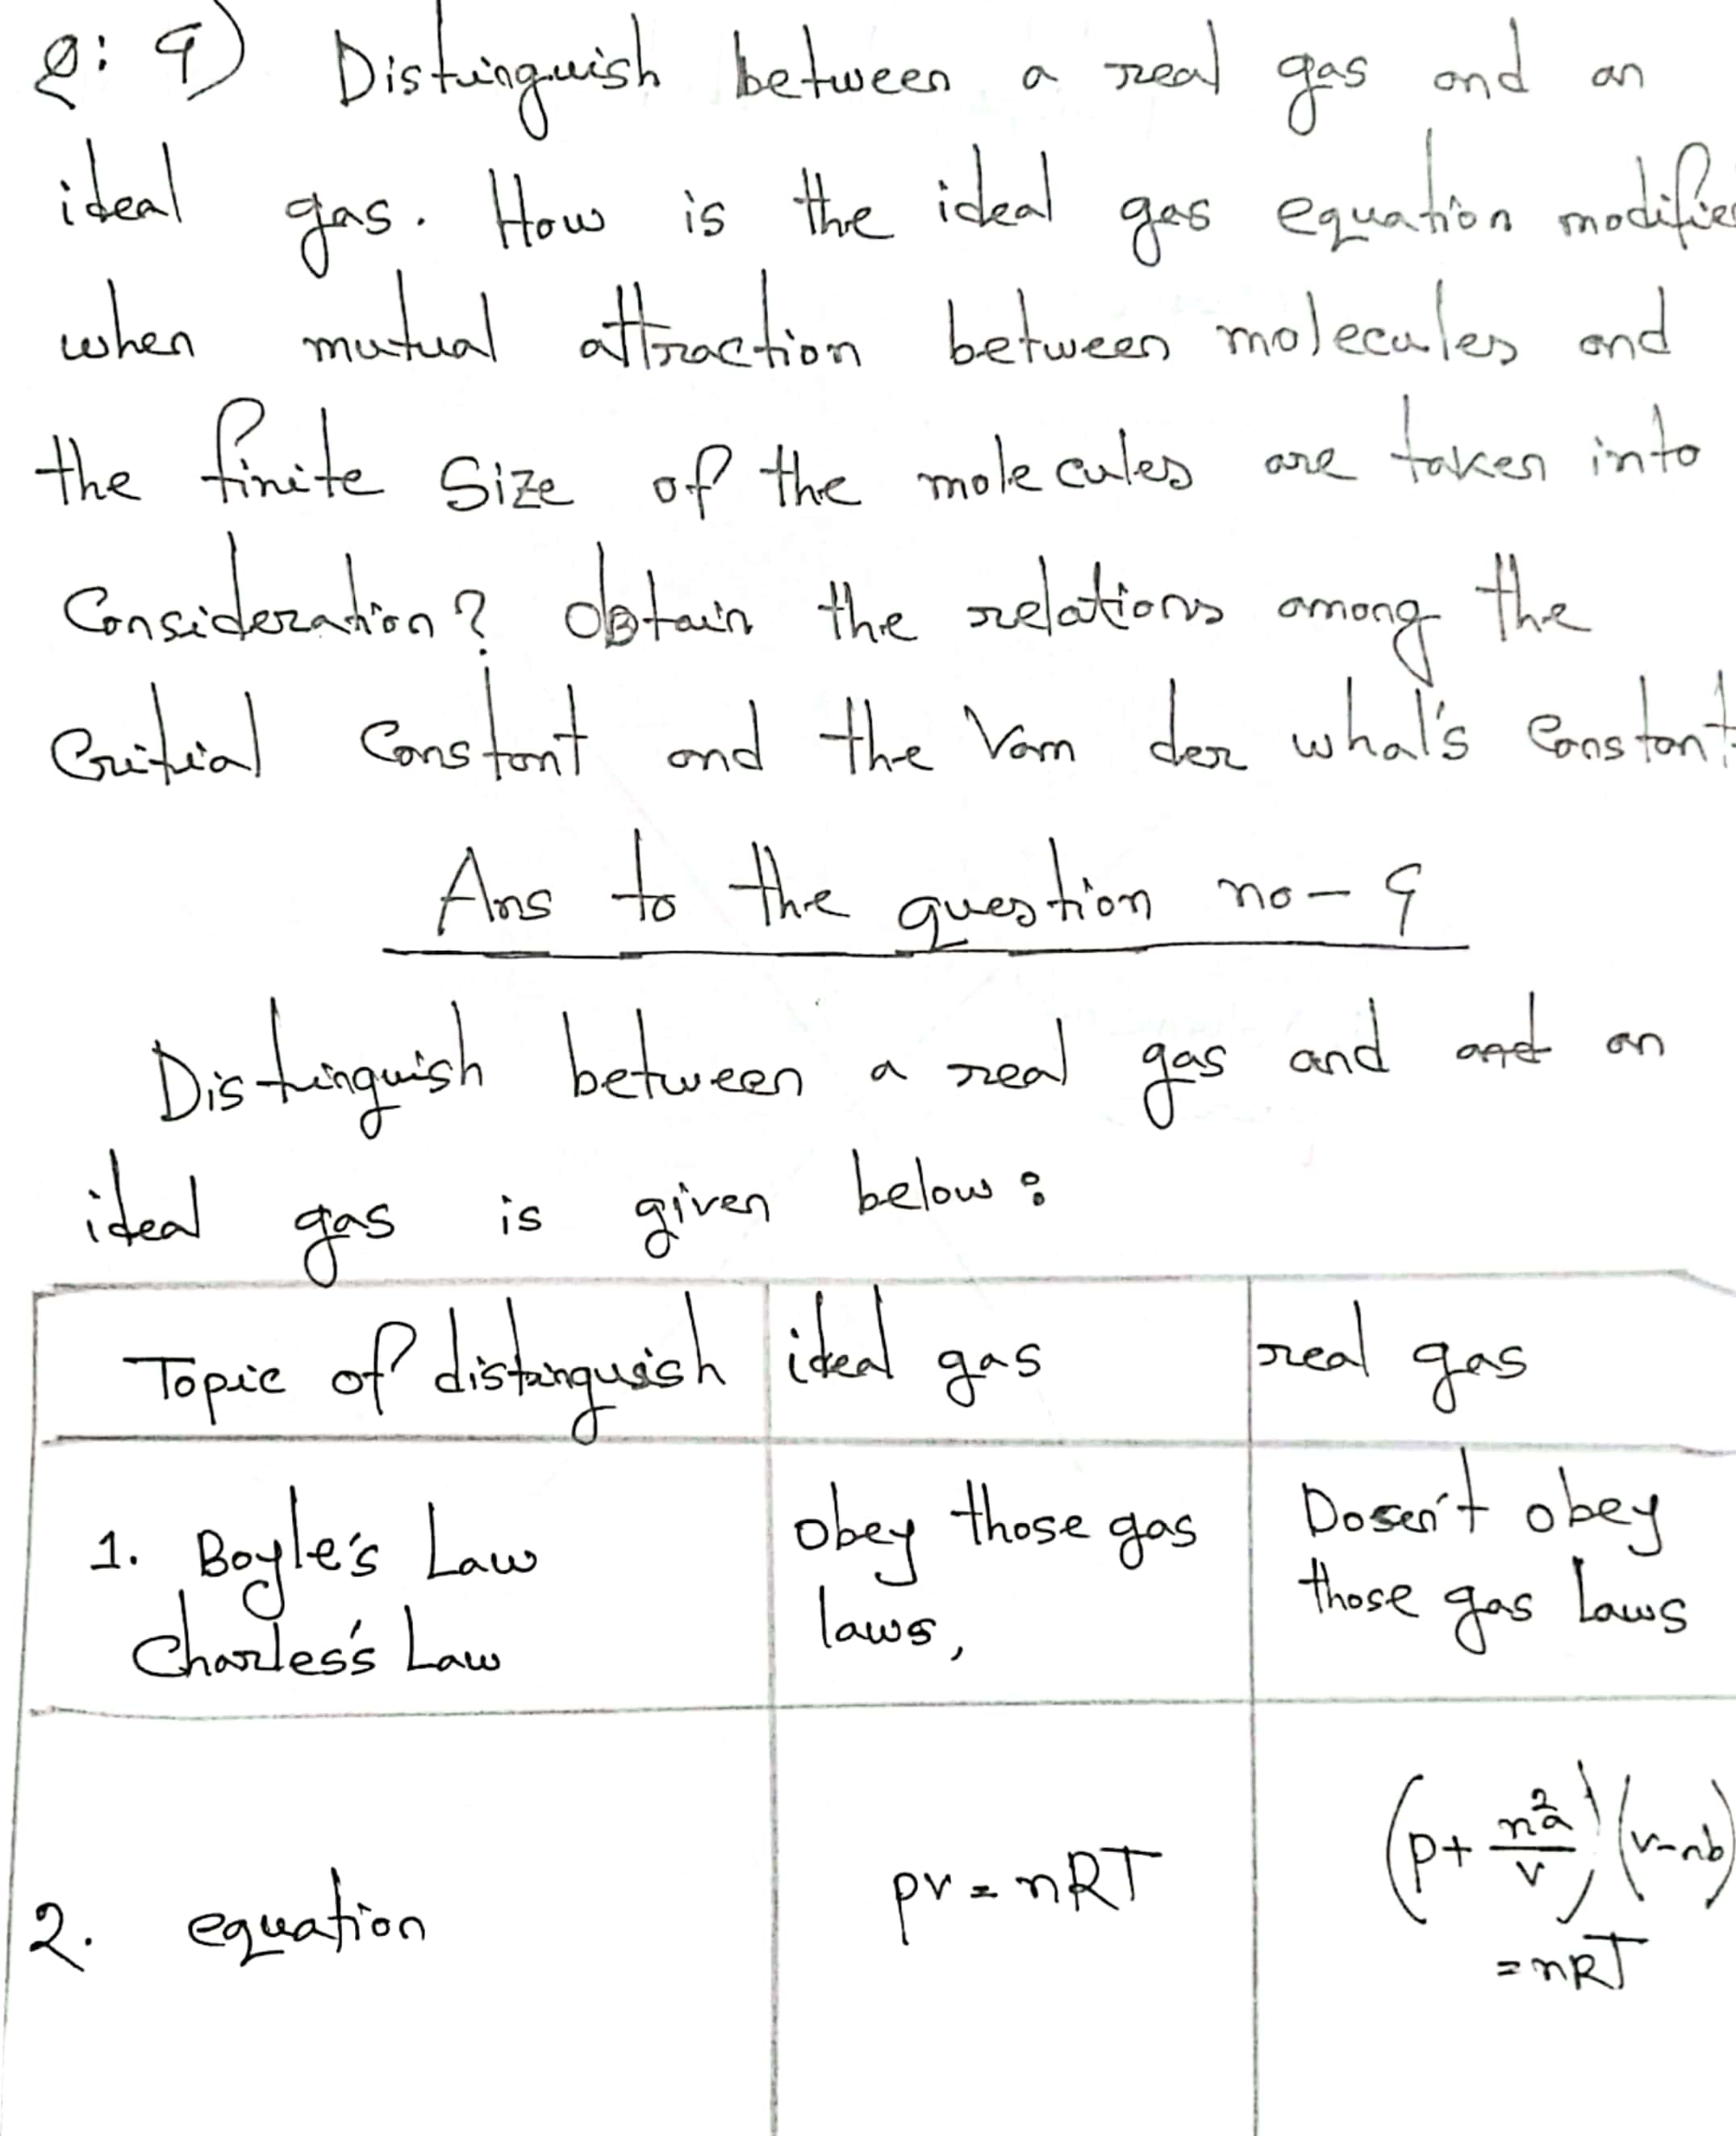 Q: 9) Distinguish between a real gas and an
ideal gas. How is the ideal gas equation modifie
when mutual attraction between molecules and
the finite size of the molecules are taken into
Consideration? Obtain the relations among the
Critial Constant and the Van der whal's Constant
Ans to the question no - 9
Distinguish between a real gas and and an
ideal gas is given below :
Topic of distinguish ideal gas real gas
1. Boyle's Law obey those gas Dosen't obey
Charles's Law laws, those gas Laws
2. equation pv = nRT (p + n²a/v) (v-nb)
= nRT